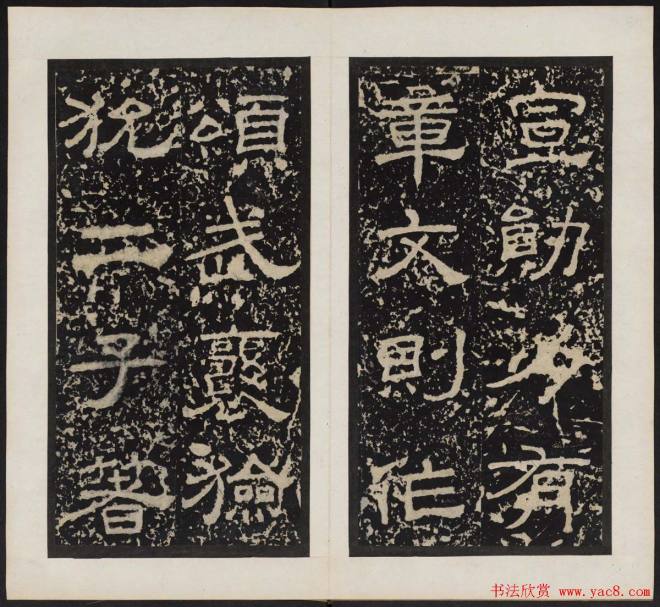 宣勛有
章文則作
頌武襄獫
狁二子著
书法欣赏 www.yac8.com